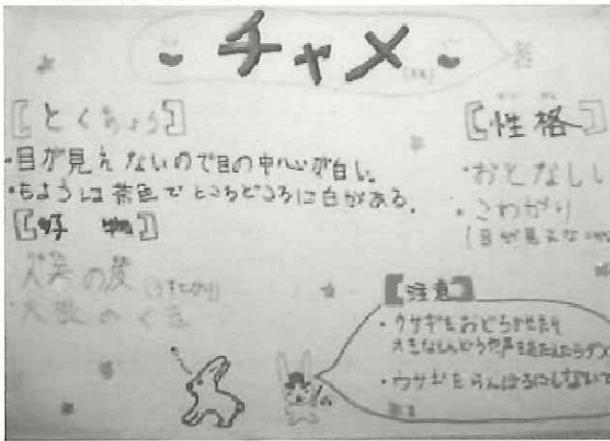 チャメ
【とくちょう】
・目が見えないので目の中心が白い。
・もようは茶色でところどころに白がある。
【好物】
の皮
大根の
【性格】
・おとなしい
・こわがり
(目が見えな
【注意】
・ウサギをおどろかせたり
大きな
・ウサギをらんぼうにしないで